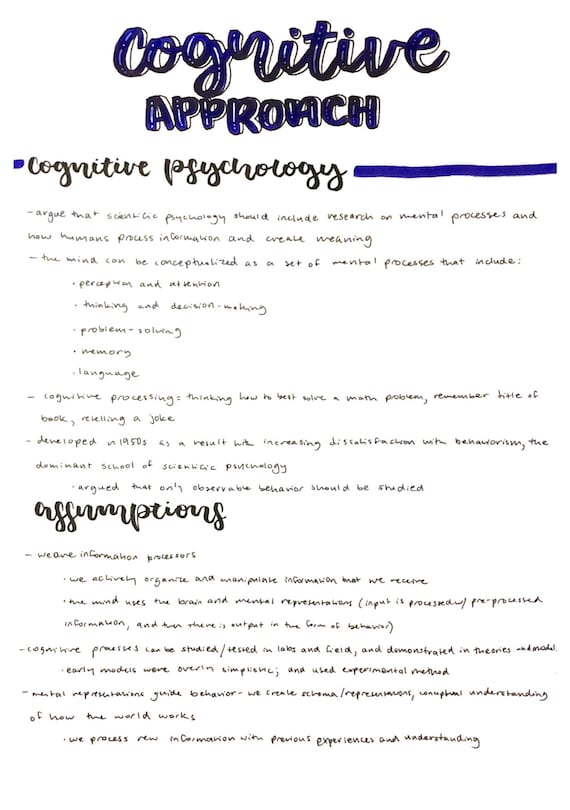 Cognitive
APPROACH
cognitive psychology
- argue that scientific psychology should include research on mental processes and
how humans process information and create meaning
- the mind can be conceptualized as a set of mental processes that include:
· perception and attention
· thinking and decision-making
· problem-solving
· memory
· language
- cognitive processing = thinking how to best solve a math problem, remember title of
book, retelling a joke
- developed in 1950s as a result with increasing dissatisfaction with behaviorism, the
dominant school of scientific psychology
· argued that only observable behavior should be studied
assumptions
- we are information processors
· we actively organize and manipulate information that we receive
· the mind uses the brain and mental representations (input is processed w/ pre-processed
information, and then there is output in the form of behavior)
- cognitive processes can be studied/tested in labs and field, and demonstrated in theories and models
· early models were overly simplistic; and used experimental method
- mental representations guide behavior - we create schema/representations, conceptual understanding
of how the world works
· we process new information with previous experiences and understanding